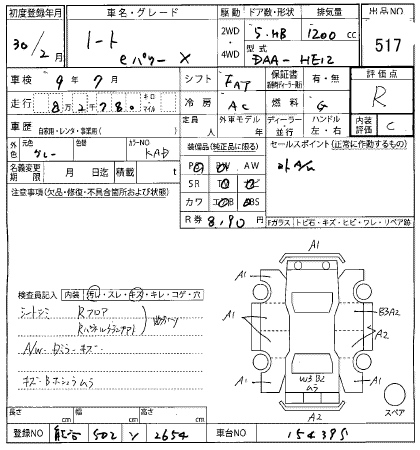 初度登録年月 車名・グレード 駆動 ドア数・形状 排気量 出品NO
30/2月 ノート eパワー X 2WD 4WD 5・HB 1200cc 517
型式 DAA-HE12
車検 9年7月 シフト FAT 保証書 有・無 評価点
走行 8万2千78 キロ マイル 冷房 AC 燃料 G R
車歴 自家用・レンタ・事業用( ) 定員 人 外車モデル 年 ディーラー 並行 ハンドル 左・右 内装評価 C
元色 グレー 色替 カラーNO KAD 装備品(純正品に限る) セールスポイント(正常に作動するもの)
名義変更期限 月 日迄 積載 t PS PW AW
注意事項(欠品・修復・不具合箇所および状態) SR TV ナビ
カワ エアB ABS
R券 8,190 円
Fガラス トビ石・キズ・ヒビ・ワレ・リペア跡
A1
検査員記入 内装 汚レ・スレ・キズ・キレ・コゲ・穴
A1 A1
シートシミ Rフロア
A1 B3 A2
A2
A/W・ガラ キズ
A1 A1
キズ・Bホシュウムラ
W3 B2
ムラ
A2
スペア
長さ cm 幅 cm 高さ cm
登録NO 502 2654 車台NO 154395